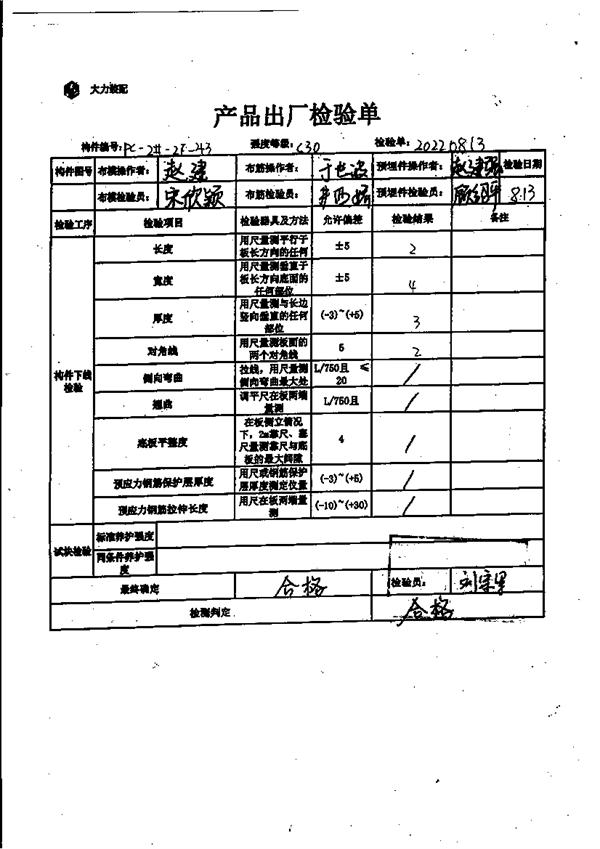 大力装配
产品出厂检验单
构件编号:PC-2#-2F-43 强度等级:C30 检验单:20220813
构件图号 布模操作者: 赵建 布筋操作者: 预埋件操作者: 赵建强 检验日期
布模检验员: 宋欣颖 布筋检验员: 预埋件检验员: 8.13
检验工序 检验项目 检验器具及方法 允许偏差 检验结果 备注
构件下线检验
长度 用尺量测平行于板长方向的任何 ±5 2
宽度 用尺量测垂直于板长方向底面的任何部位 ±5 4
厚度 用尺量测与长边竖向垂直的任何部位 (-3)~(+5) 3
对角线 用尺量测板面的两个对角线 5 2
侧向弯曲 拉线,用尺量测侧向弯曲最大处 L/750且 ≤20 /
翘曲 调平尺在板两端量测 L/750且 /
底板平整度 在板侧立情况下,2m靠尺、塞尺量测靠尺与底板的最大间隙 4 /
预应力钢筋保护层厚度 用尺或钢筋保护层厚度测定仪量 (-3)~(+5) /
预应力钢筋拉伸长度 用尺在板两端量测 (-10)~(+30) /
试块检验 标准养护强度
同条件养护强度
最终确定 合格 检验员:
检测判定 合格